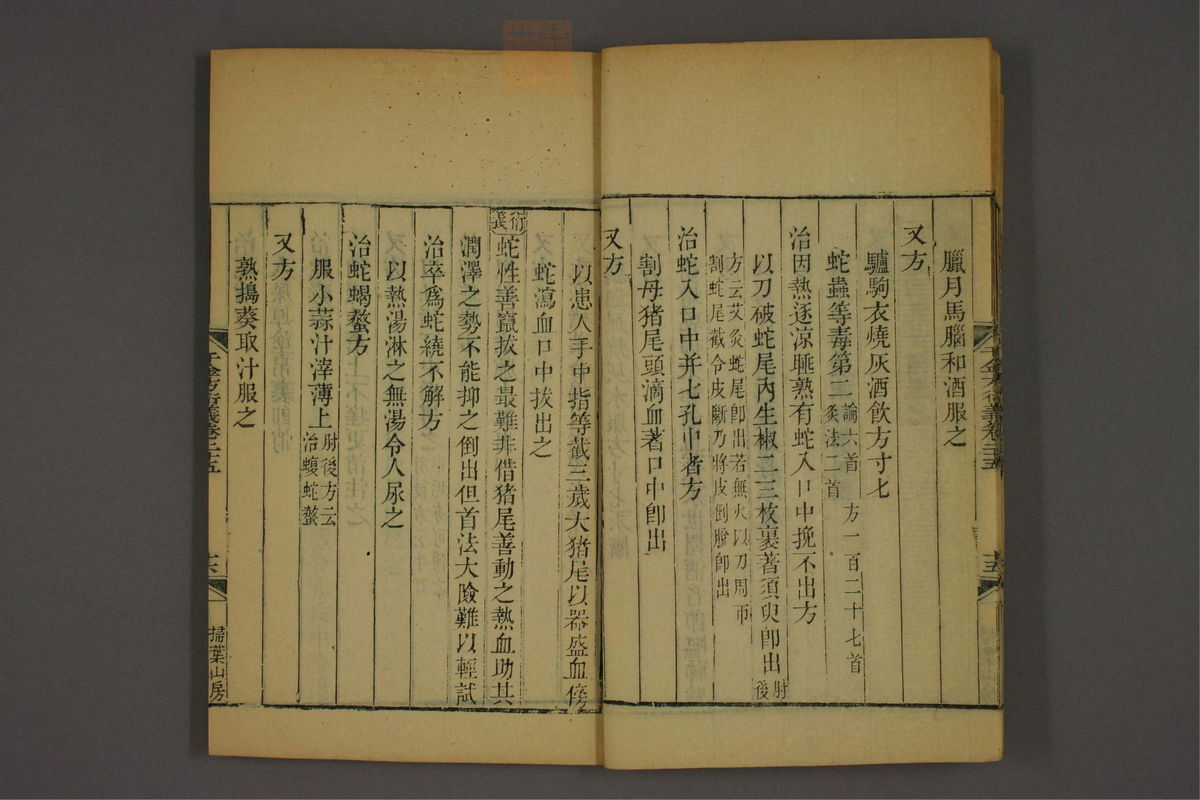 臘月馬腦和酒服之
又方
驢駒衣燒灰酒飲方寸七
蛇蟲等毒第二 論六首 方一百二十七首 灸法二首
治因熱逐凉睡熟有蛇入口中挽不出方
以刀破蛇尾內生椒二三枚裹著須臾卽出 肘後
方云艾灸蛇尾卽出若無火以刀周帀
割蛇尾截令皮斷乃將皮倒脫卽出
治蛇入口中并七孔中者方
割母猪尾頭滴血著口中卽出
又方
千金方衍義卷二十五 十五
以患人手中指等截三歲大猪尾以器盛血傍
蛇瀉血口中拔出之
衍義 蛇性善竄拔之最難非借猪尾善動之熱血助其
潤澤之勢不能抑之倒出但首法大險難以輕試
治卒爲蛇繞不解方
以熱湯淋之無湯令人尿之
治蛇蝎螫方
服小蒜汁滓薄上 肘後方云治蝮蛇螫
又方
熟搗葵取汁服之
千金方衍義卷二十五 十六 掃葉山房